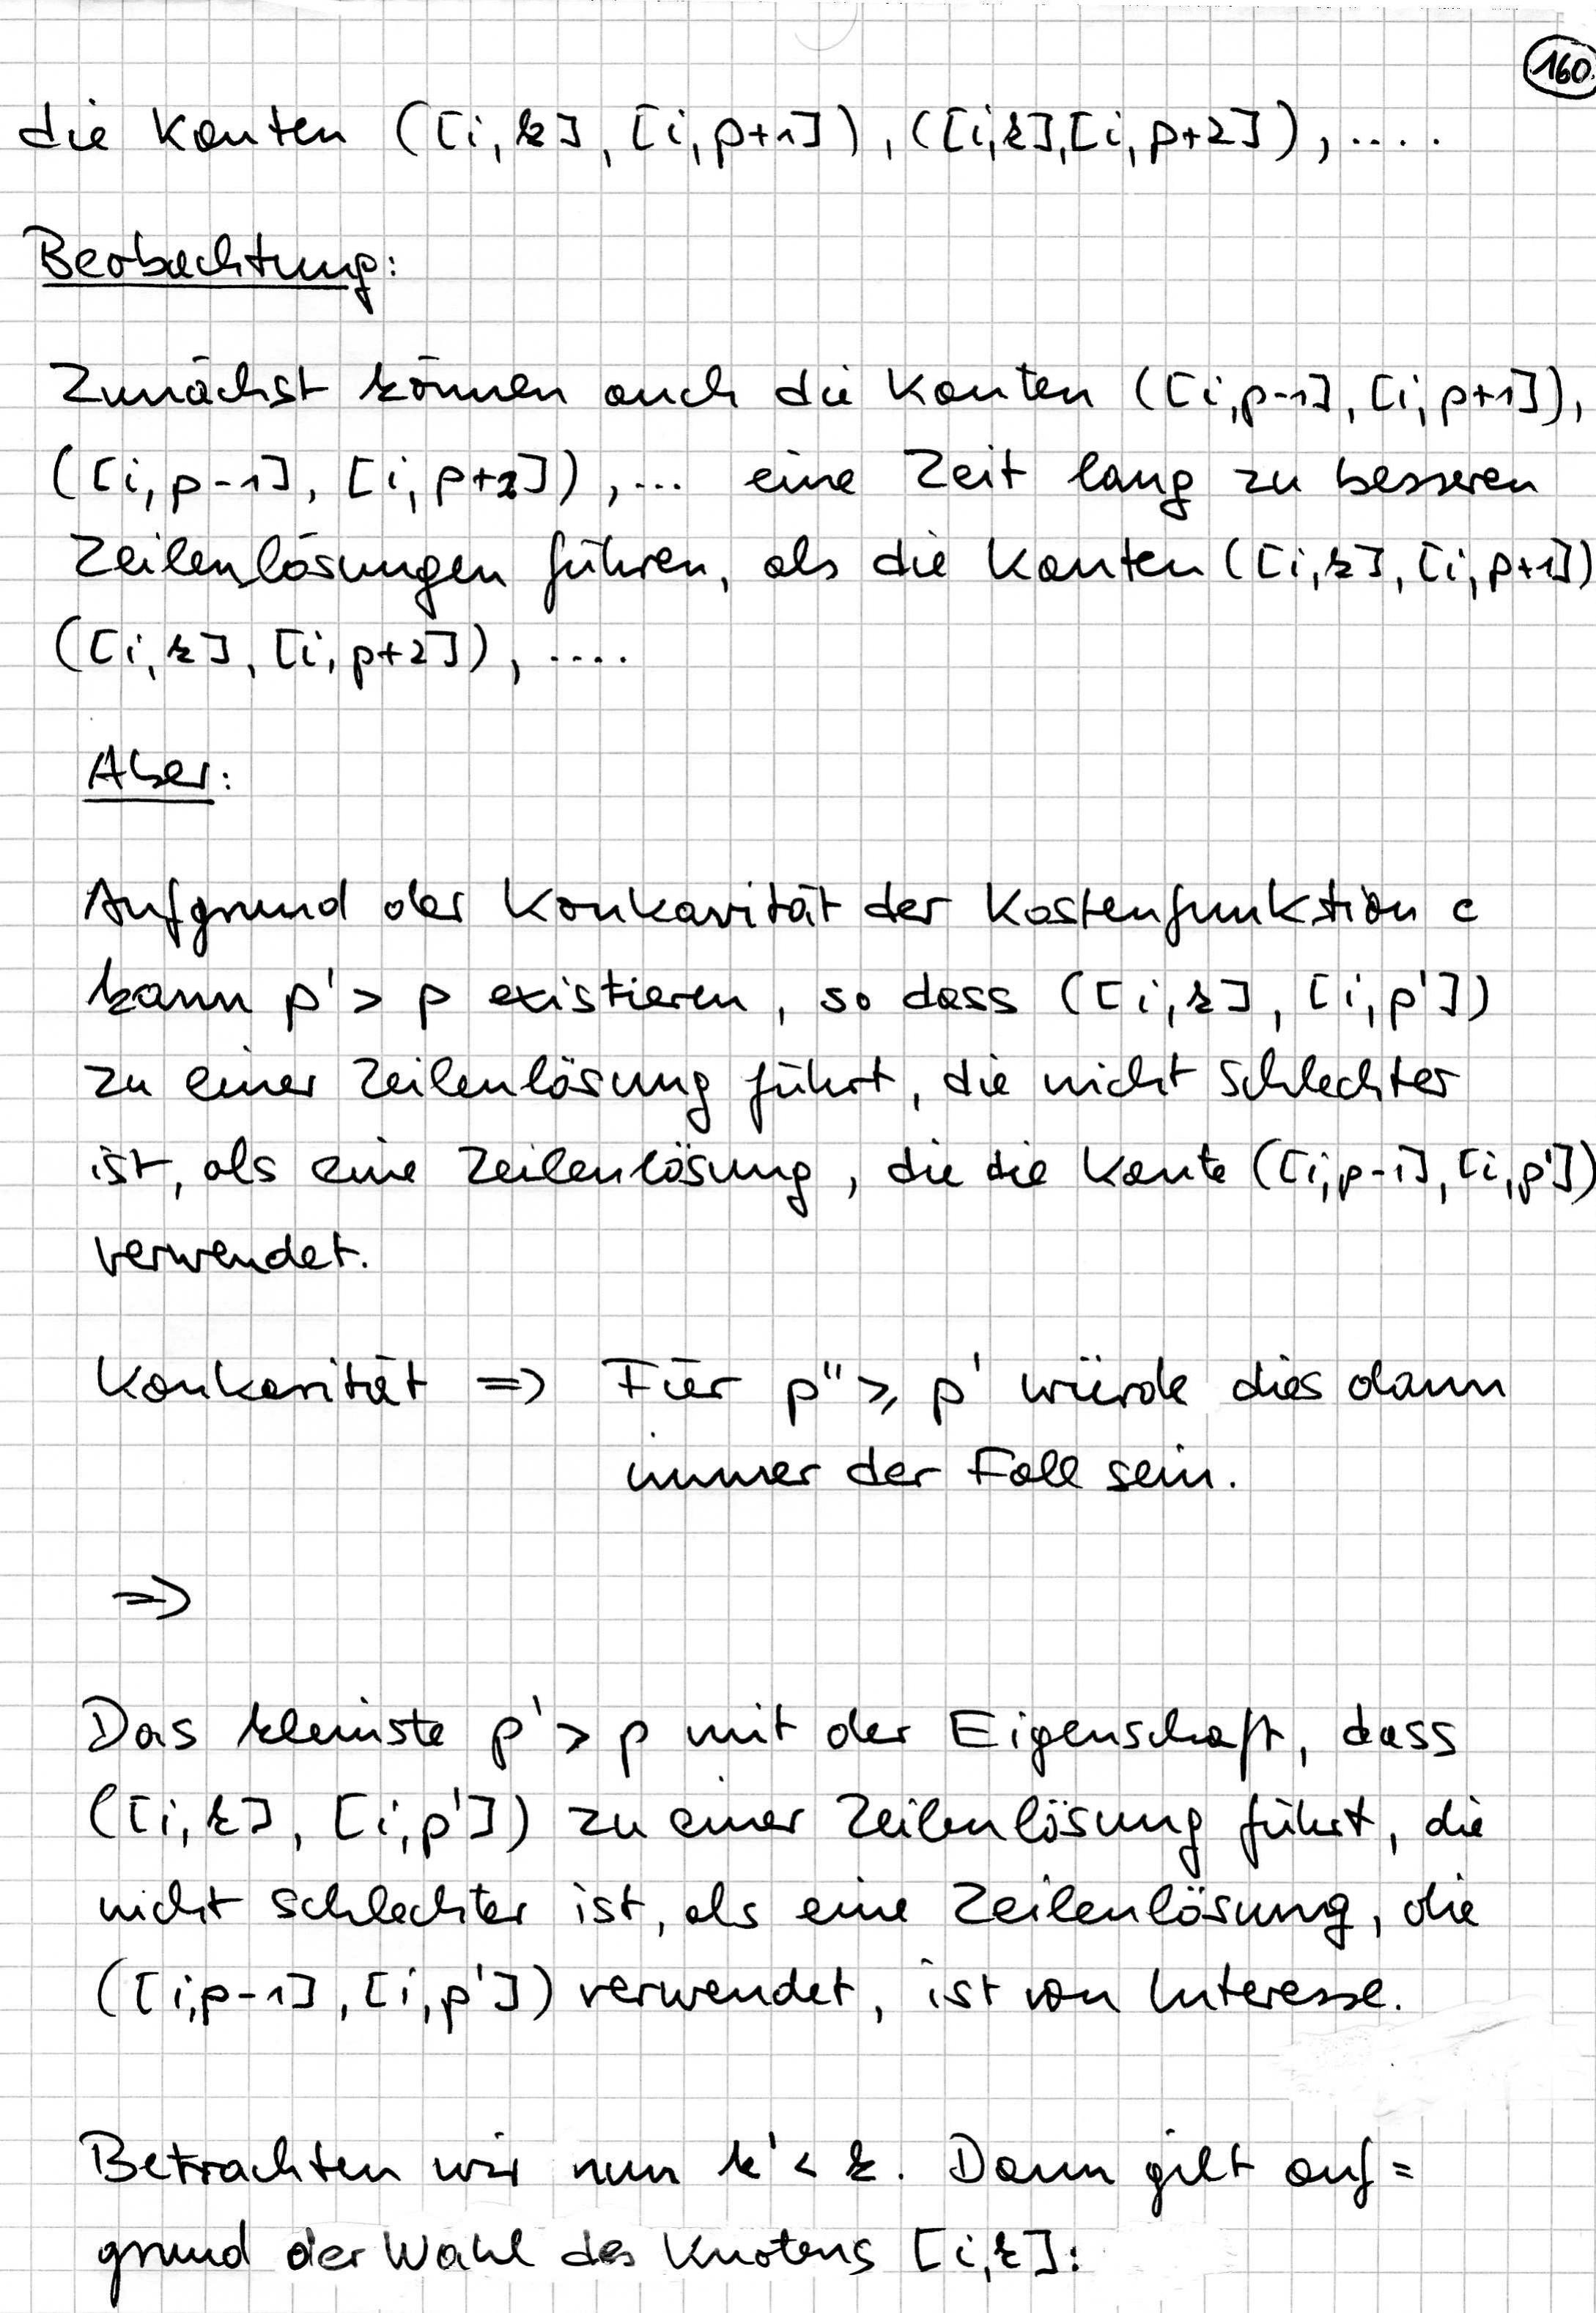 160
die Kanten ([i,k], [i,p+1]), ([i,k],[i,p+2]), ....
Beobachtung:
Zunächst können auch die Kanten ([i,p-1], [i,p+1]),
([i,p-1], [i,p+2]), ... eine Zeit lang zu besseren
Zeilenlösungen führen, als die Kanten ([i,k], [i,p+1])
([i,k], [i,p+2]), ....
Aber:
Aufgrund der Konkavität der Kostenfunktion c
kann p' > p existieren, so dass ([i,k], [i,p'])
zu einer Zeilenlösung führt, die nicht schlechter
ist, als eine Zeilenlösung, die die Kante ([i,p-1], [i,p'])
verwendet.
Konkavität => Für p'' ≥ p' würde dies dann
immer der Fall sein.
=>
Das kleinste p' > p mit der Eigenschaft, dass
([i,k], [i,p']) zu einer Zeilenlösung führt, die
nicht schlechter ist, als eine Zeilenlösung, die
([i,p-1], [i,p']) verwendet, ist von Interesse.
Betrachten wir nun k' < k. Dann gilt auf=
grund der Wahl des Knotens [i,k]: